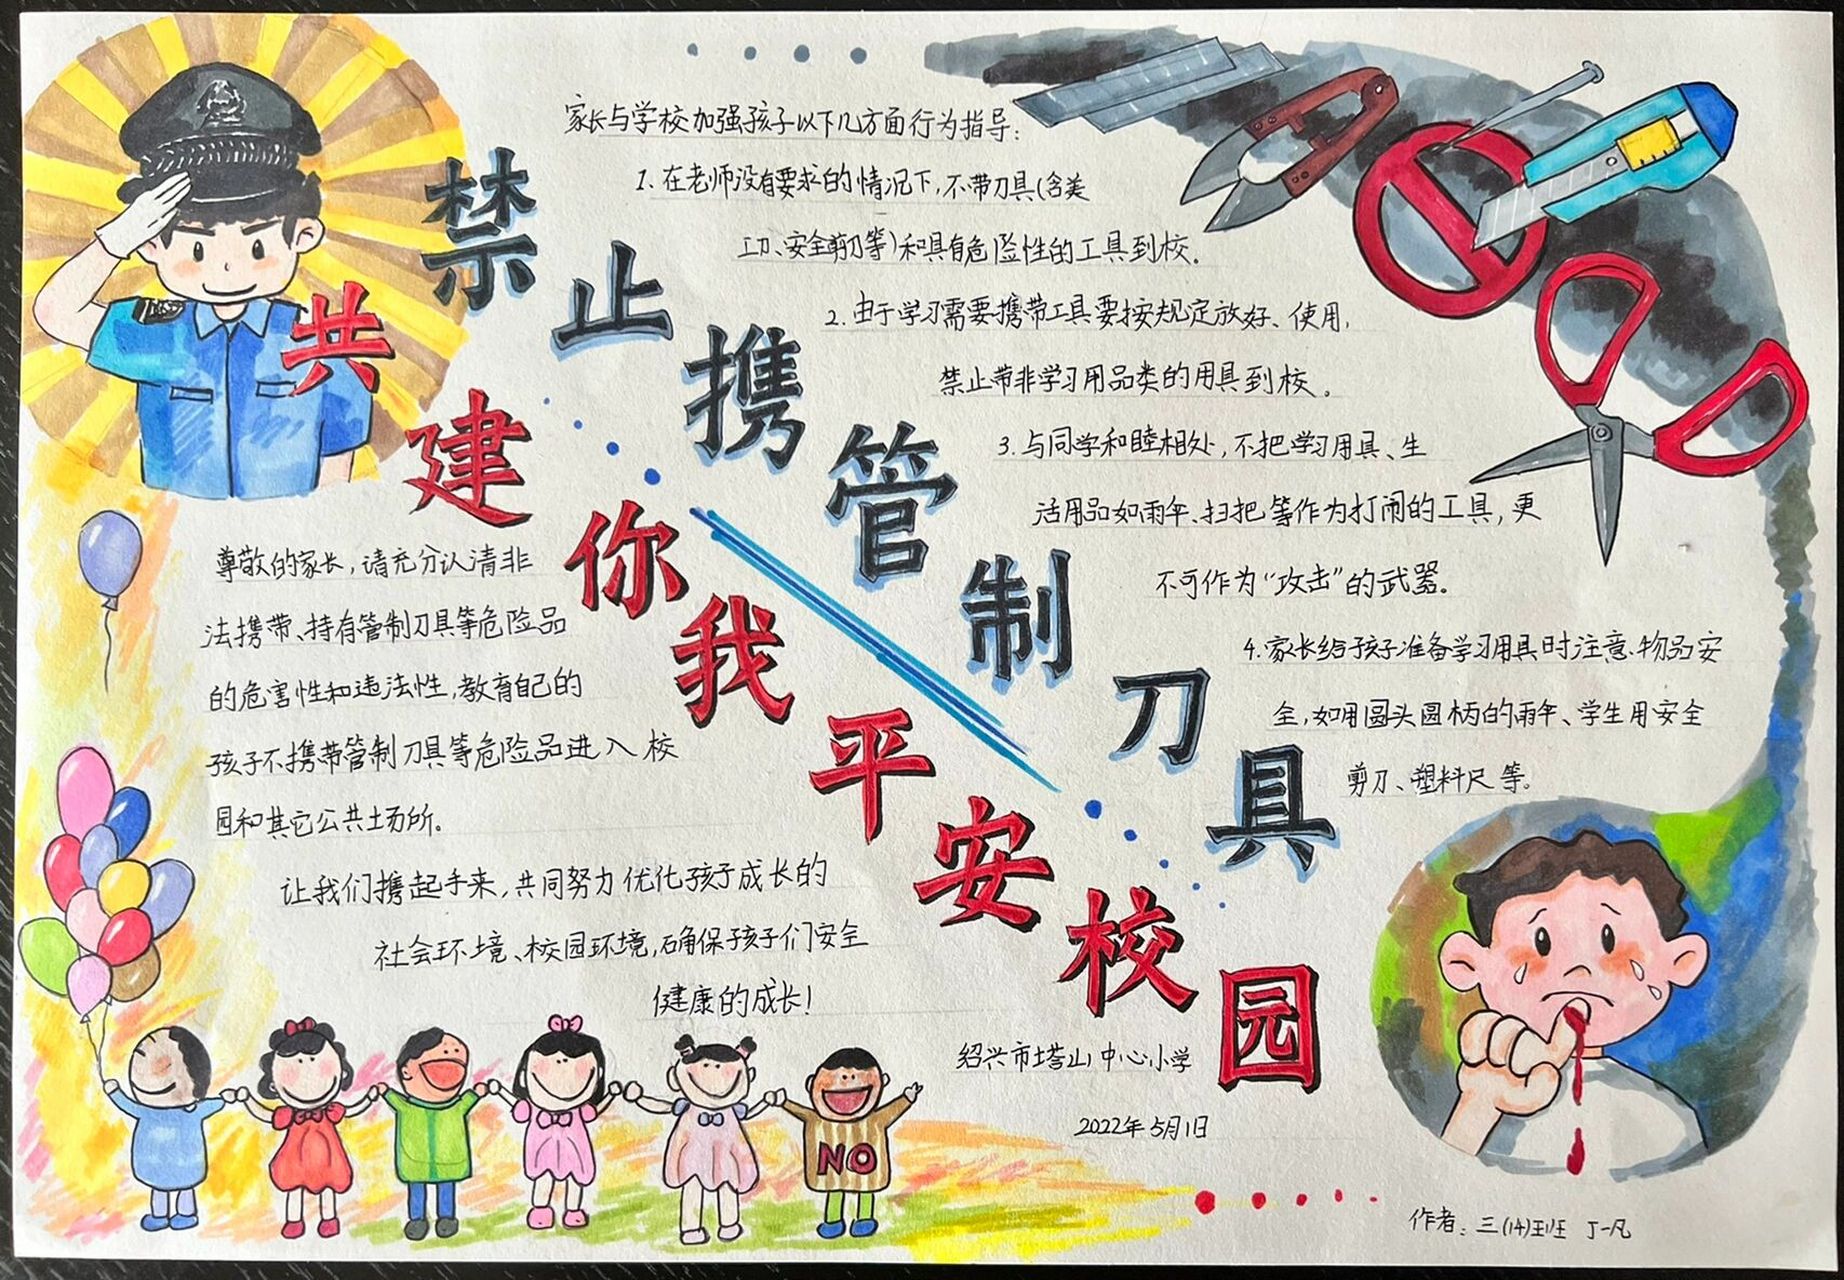 禁止携管制刀具
共建你我平安校园
家长与学校加强孩子以下几方面行为指导:
1.在老师没有要求的情况下,不带刀具(含美
工刀、安全剪刀等)和具有危险性的工具到校。
2.由于学习需要携带工具要按规定放好、使用,
禁止带非学习用品类的用具到校。
3.与同学和睦相处,不把学习用具、生
活用品如雨伞、扫把等作为打闹的工具,更
不可作为“攻击”的武器。
4.家长给孩子准备学习用具时注意物品安
全,如用圆头圆柄的雨伞、学生用安全
剪刀、塑料尺等。
尊敬的家长,请充分认清非
法携带、持有管制刀具等危险品
的危害性和违法性,教育自己的
孩子不携带管制刀具等危险品进入校
园和其它公共场所。
让我们携起手来,共同努力优化孩子成长的
社会环境、校园环境,确保孩子们安全
健康的成长!
绍兴市塔山中心小学
2022年5月1日
NO
作者:三(14)班 丁一凡